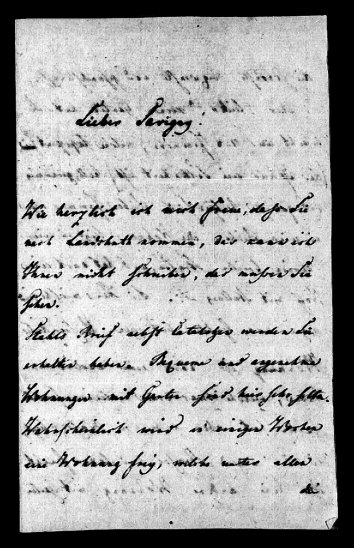 Lieber Savigny!
Wie herzlich ich mich freue, dass Sie
nach Landshuth kommen, das kann ich
Ihnen nicht schreiben, das müssen Sie
sehen.
Brief nebst Cataloge werden Sie
erhalten haben. Bequeme und angenehme
Wohnungen mit Garten sind hier sehr selten.
Wahrscheinlich wird in einigen Wochen
eine Wohnung frey, welche unter allen
die